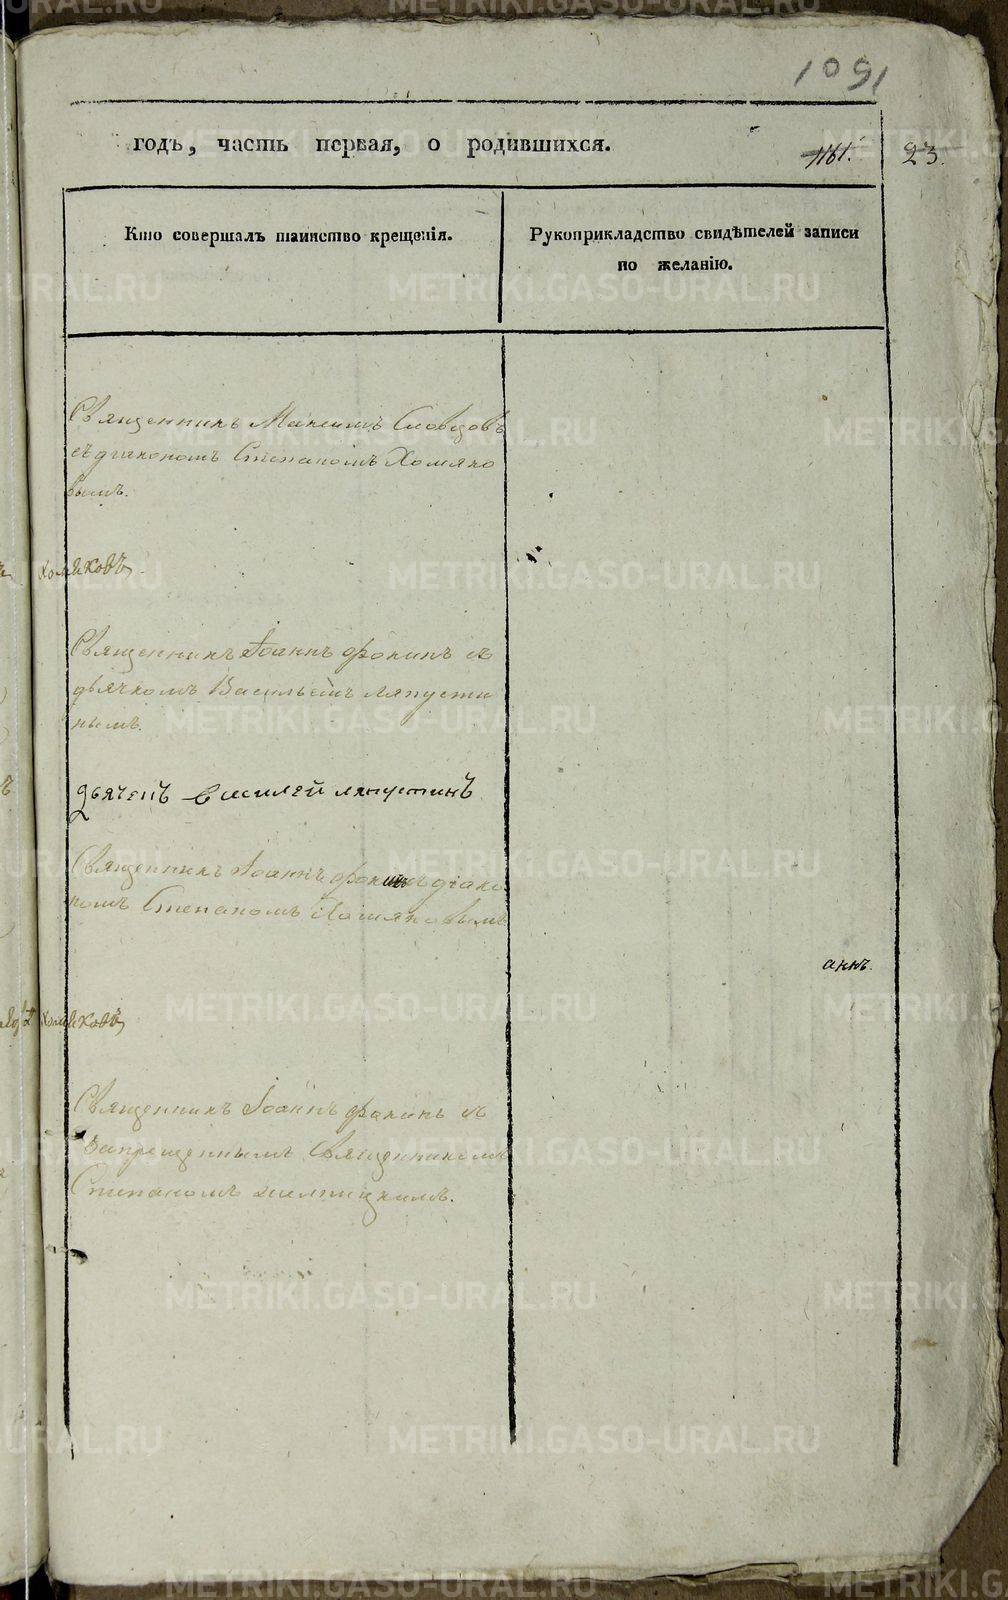 1091
годъ, часть первая, о родившихся.
1161. 23.
Кто совершалъ таинство крещенія.
Рукоприкладство свидѣтелей записи
по желанію.
Священникъ Максимъ Словцовъ
съ діякономъ Степаномъ Хомяко
вымъ.
Хомяковъ
Священникъ Іоаннъ Фокинъ съ
дьячкомъ Васильемъ Ляпусти
нымъ.
дьячекъ Василей ляпустинъ
Священникъ Іоаннъ Фокинъ діяко
номъ Степаномъ Хомяковымъ
аннъ.
Хомяковъ
Священникъ Іоаннъ Фокинъ съ
Запрещеннымъ Священникомъ
Степаномъ
METRIKI.GASO-URAL.RU